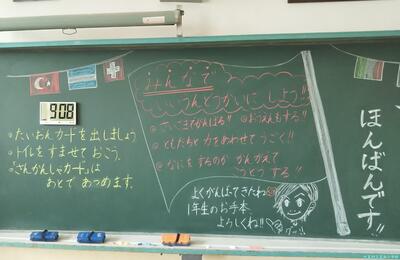 9:08
・たいおんカードを出しましょう
・トイレをすませておこう。
・さんかんしゃカードは
あとであつめます。
みんなで
いいうんどうかいにしよう!!
◎さいごまでがんばる!! ◎おうえんもする!!
◎ともだちと力をあわせてうごく!!
◎なにをするのかかんがえて
うごうする!!
よくがんばってきたね
1年生のお手本
よろしくね!!
ほんばんです!!